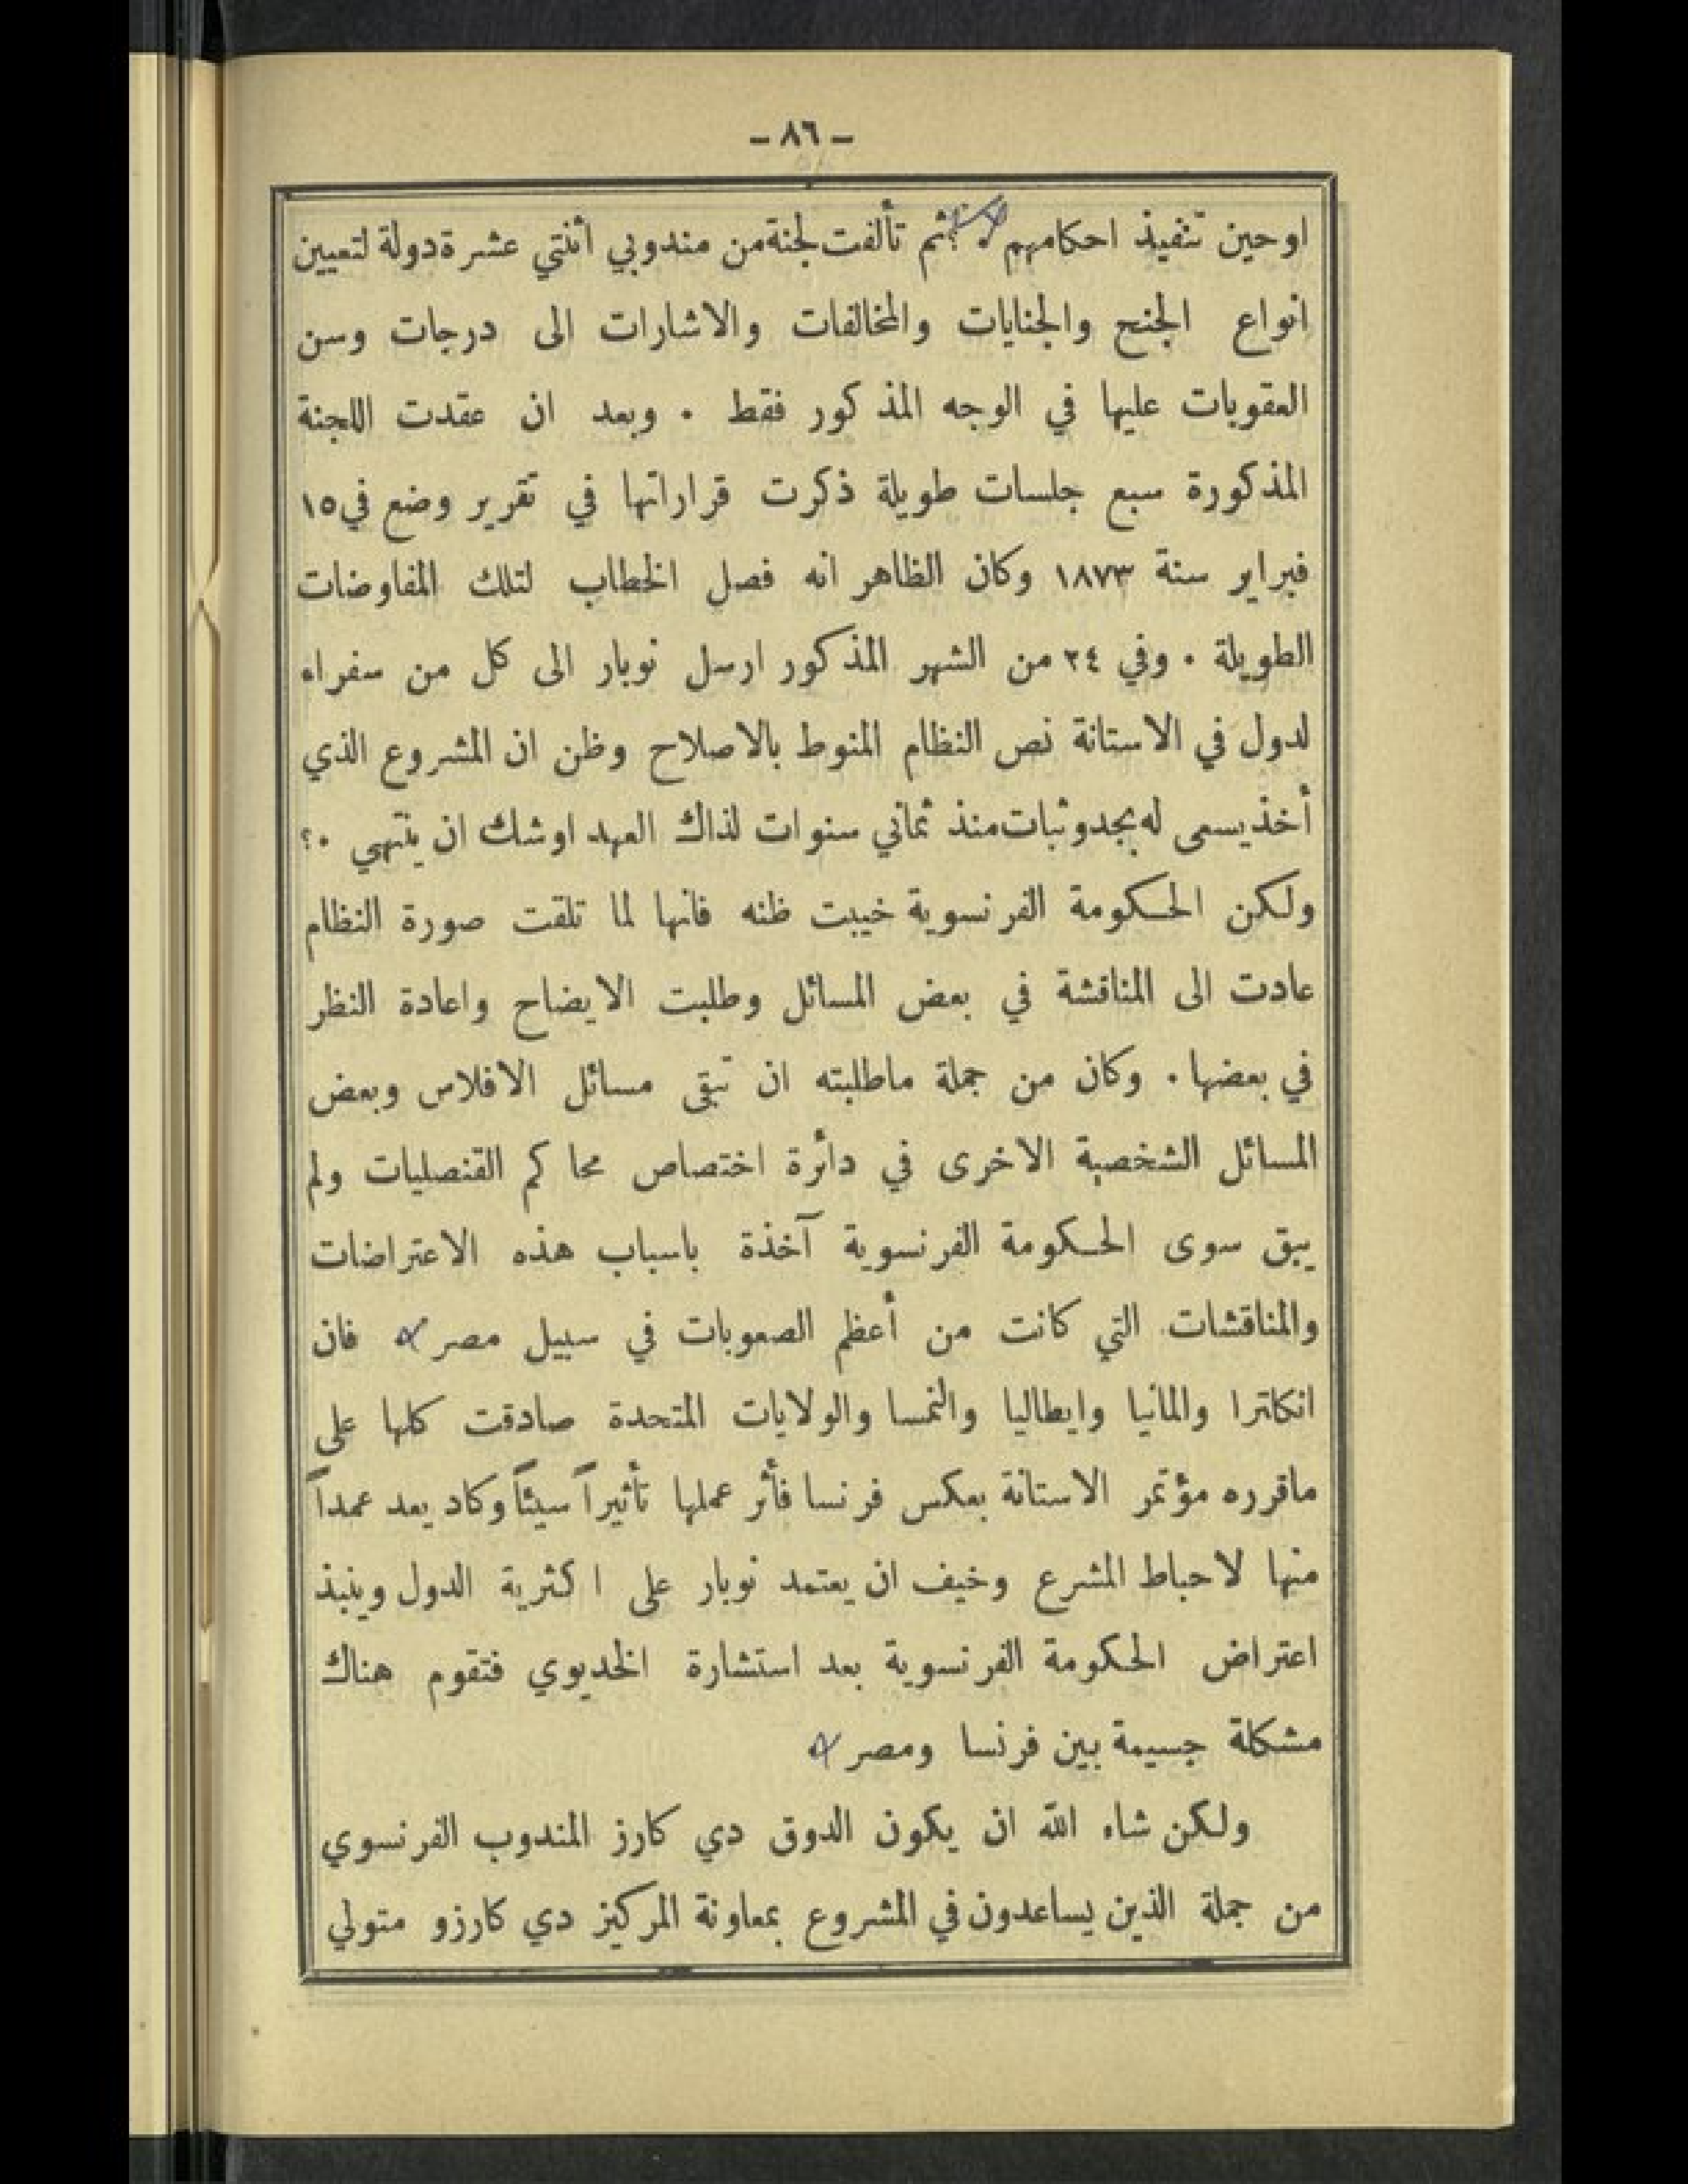 – ٨٦ –
اوحين تنفيذ احكامهم . ثم تألفت لجنة من مندوبي أثنتي عشرة دولة لتعيين
انواع الجنح والجنايات والمخالفات والاشارات الى درجات وسن
العقوبات عليها في الوجه المذكور فقط . وبعد ان عقدت اللجنة
المذكورة سبع جلسات طويلة ذكرت قراراتها في تقرير وضع في ١٥
فبراير سنة ١٨٧٣ وكان الظاهر انه فصل الخطاب لتلك المفاوضات
الطويلة . وفي ٢٤ من الشهر المذكور ارسل نوبار الى كل من سفراء
لدول في الاستانة نص النظام المنوط بالاصلاح وظن ان المشروع الذي
أخذ يسعى له بجد وثبات منذ ثماني سنوات لذاك العهد اوشك ان ينتهي .؟
ولكن الحكومة الفرنسوية خيبت ظنه فانها لما تلقت صورة النظام
عادت الى المناقشة في بعض المسائل وطلبت الايضاح واعادة النظر
في بعضها . وكان من جملة ماطلبته ان تبقى مسائل الافلاس وبعض
المسائل الشخصية الاخرى في دائرة اختصاص محاكم القنصليات ولم
يبق سوى الحكومة الفرنسوية آخذة باسباب هذه الاعتراضات
والمناقشات التي كانت من أعظم الصعوبات في سبيل مصر فان
انكلترا والمانيا وايطاليا والنمسا والولايات المتحدة صادقت كلها على
ماقرره مؤتمر الاستانة بعكس فرنسا فأثر عملها تأثيراً سيئاً وكاد يعد عمداً
منها لاحباط المشرع وخيف ان يعتمد نوبار على اكثرية الدول وينبذ
اعتراض الحكومة الفرنسوية بعد استشارة الخديوي فتقوم هناك
مشكلة جسيمة بين فرنسا ومصر
ولكن شاء الله ان يكون الدوق دي كارز المندوب الفرنسوي
من جملة الذين يساعدون في المشروع بمعاونة المركيز دي كارزو متولي